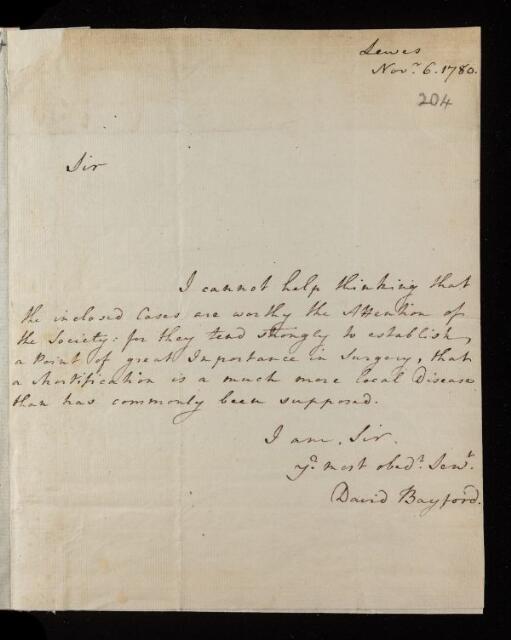 Lewes
Novr. 6. 1780.
204
Sir
I cannot help thinking that
the inclosed Cases are worthy the Attention of
the Society: for they tend strongly to establish,
a Point of great Importance in Surgery, that
a Mortification is a much more local Disease
than has commonly been supposed.
I am, Sir.
yr. most obedt. Servt.
David Bayford.